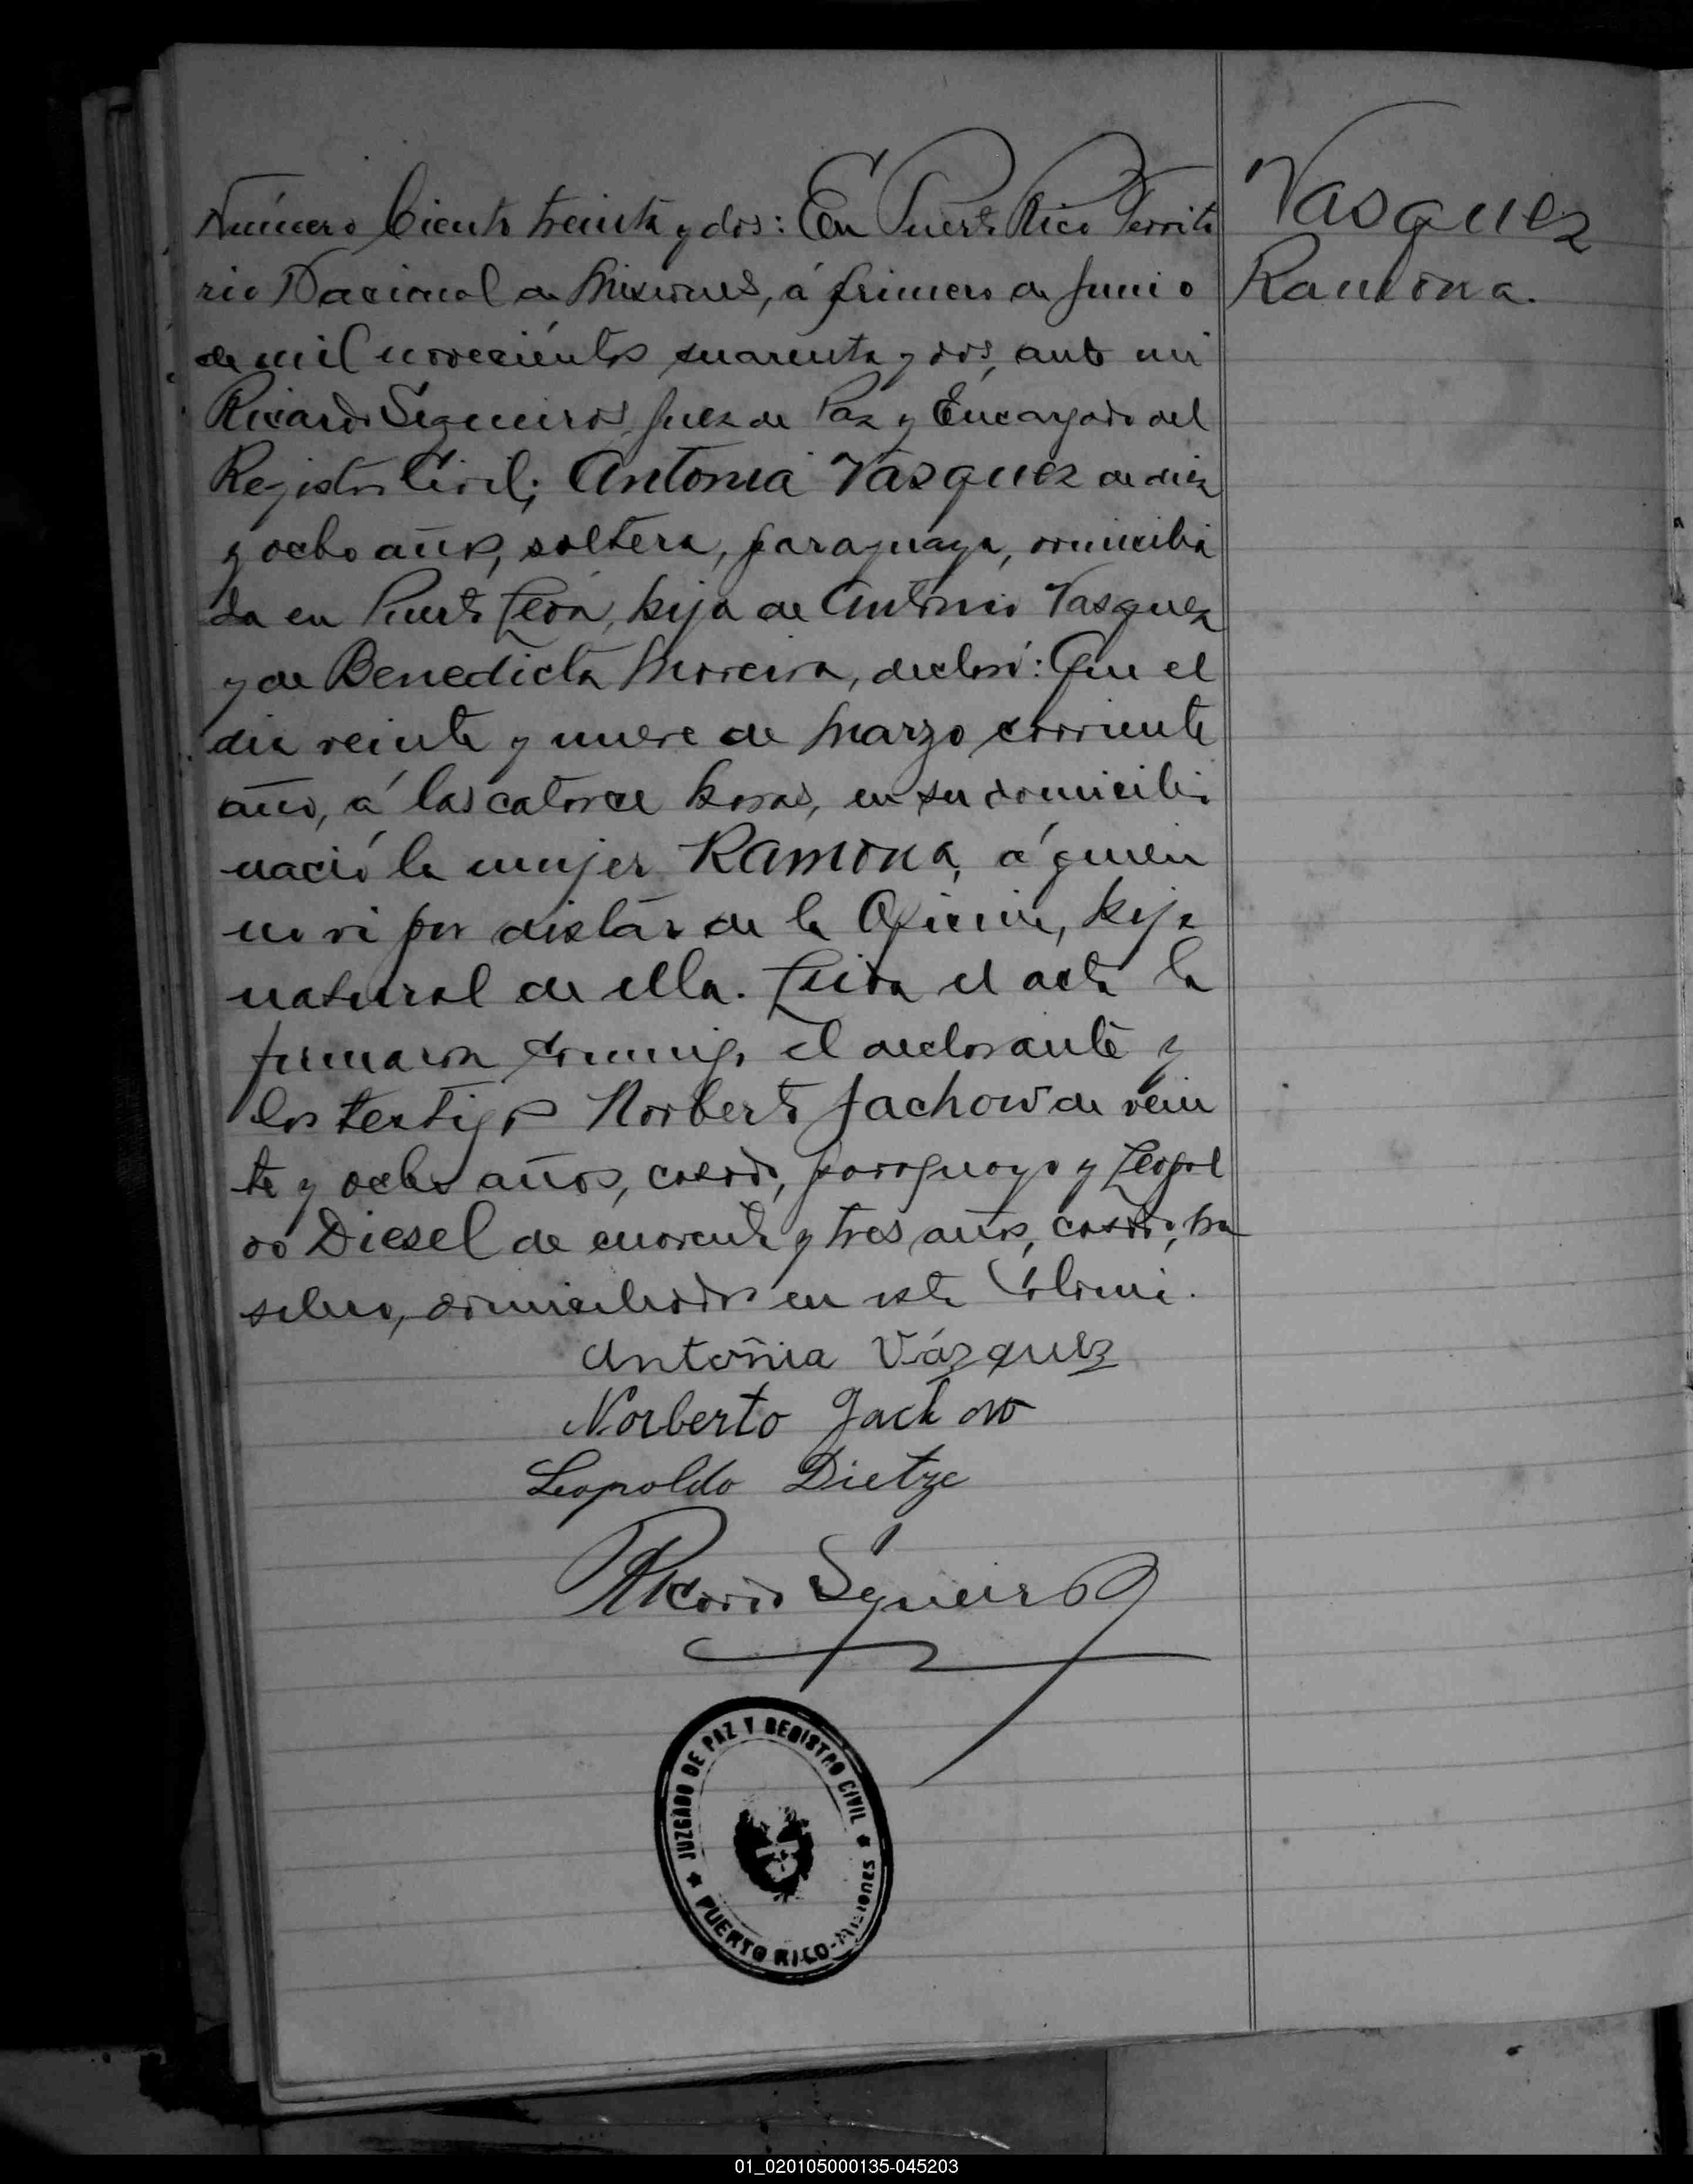 Número Ciento treinta y dos: En Puerto Rico Territo
rio Nacional de Misiones, á primero de Junio
de mil novecientos cuarenta y dos, ante mi
Ricardo Sequeiros Juez de Paz y Encargado del
Registro Civil; Antonia Vasquez de diez
y ocho años, soltera, paraguaya, domicilia
da en Puerto León, hija de Antonio Vasquez
y de Benedicta Moreira, declaró: Que el
dia veinte y nueve de Marzo corriente
año, á las catorce horas, en su domicilio
nació la mujer Ramona, á quien
no vi por distar de la Oficina, hija
natural de ella. Leida el acta la
firmaron conmigo el declarante y
los testigos Norberto Jachow de vein
te y ocho años, casado, paraguayo y Leopol
do Diesel de cuarenta y tres años, casado, bra
silero, domiciliados en esta Colonia.
Antonia Vázquez
Norberto Jachow
Leopoldo Dietze
Ricardo Sequeiros
Vasquez
Ramona.
JUZGADO DE PAZ Y REGISTRO CIVIL
PUERTO RICO-MISIONES
01_020105000135-045203